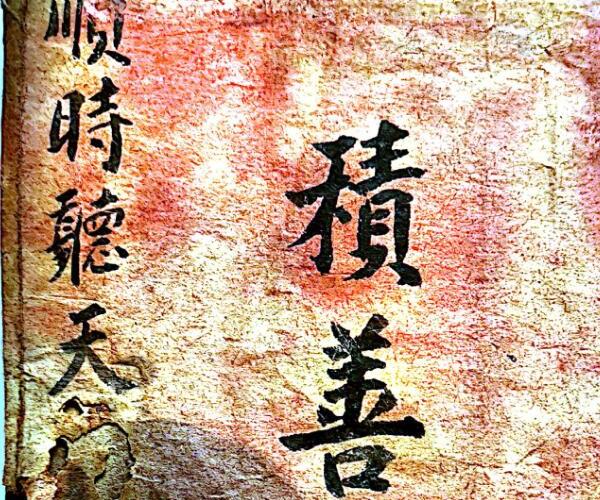 積善
順時聽天